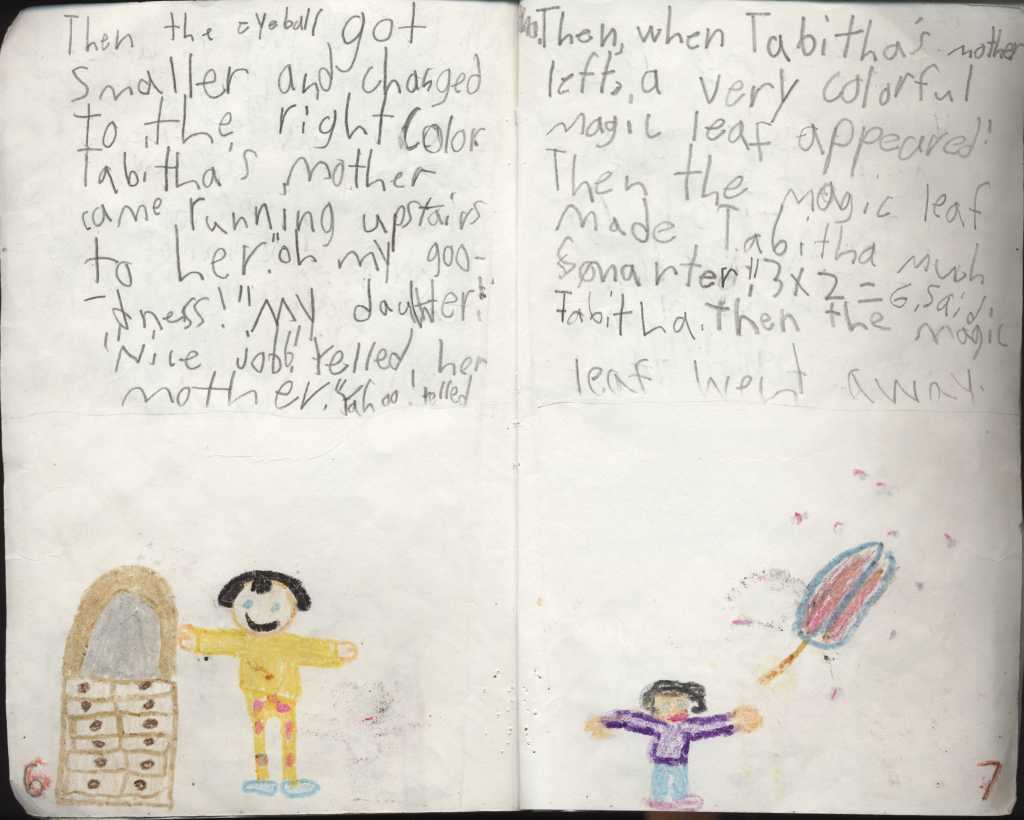 Then the eyeball got
smaller and changed
to the right color
Tabitha's mother
came running upstairs
to her. "oh my goo-
-dness!" "My daughter!"
"Nice job!" Yelled her
mother. "Yahoo! Yelled
6
Then, when Tabitha's mother
left, a very colorful
magic leaf appeared!
Then the magic leaf
made Tabitha much
smarter! "3x2=6, Said,
Tabitha. Then the magic
leaf went away.
7